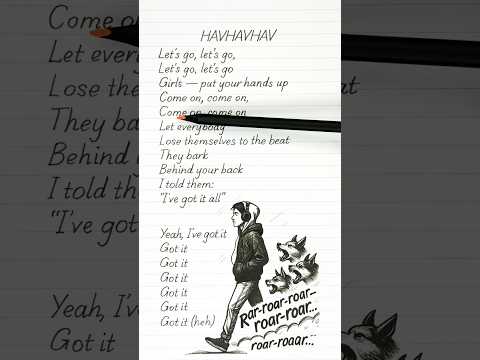 HAVHAVHAV
Let's go, let's go,
Let's go, let's go
Girls — put your hands up
Come on, come on,
Come on, come on
Let everybody
Lose themselves to the beat
They bark
Behind your back
I told them:
“I've got it all”
Yeah, I've got it
Got it
Got it
Got it
Got it
Got it
Got it (heh)
Rar-roar-roar–
roar-roar...
roar-roaar...